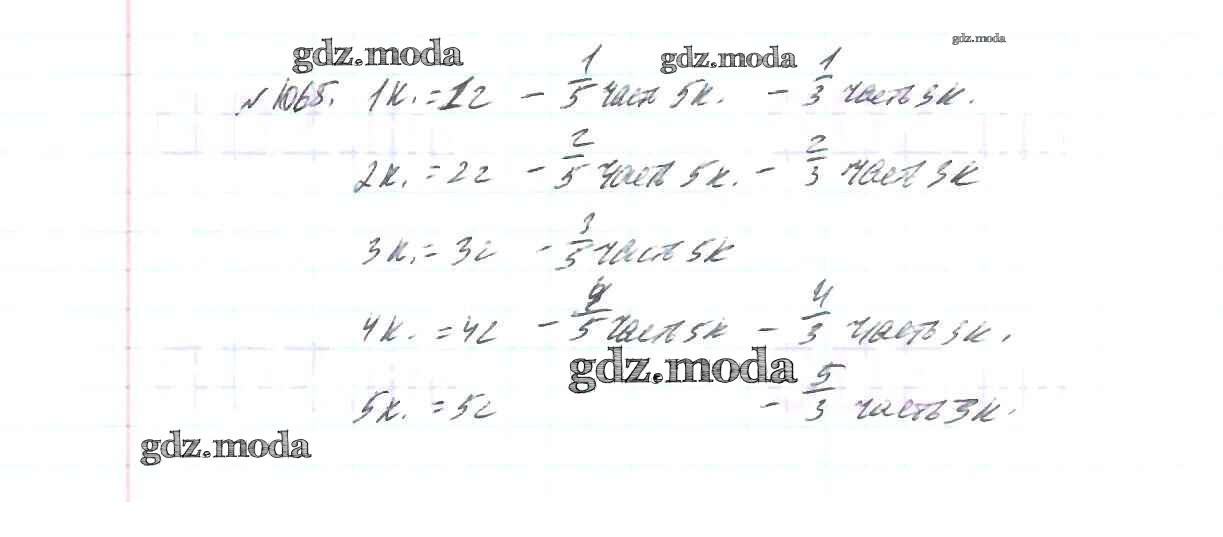 gdz.moda gdz.moda gdz.moda
№1065. 1к. = 1г - 1/5 част 5к. - 1/3 часть 3к.
2к. = 2г - 2/5 часть 5к. - 2/3 част 3к
3к. = 3г - 3/5 част 5к
4к. = 4г - 4/5 част 5к - 4/3 часть 3к.
gdz.moda
5к. = 5г - 5/3 часть 3к.
gdz.moda